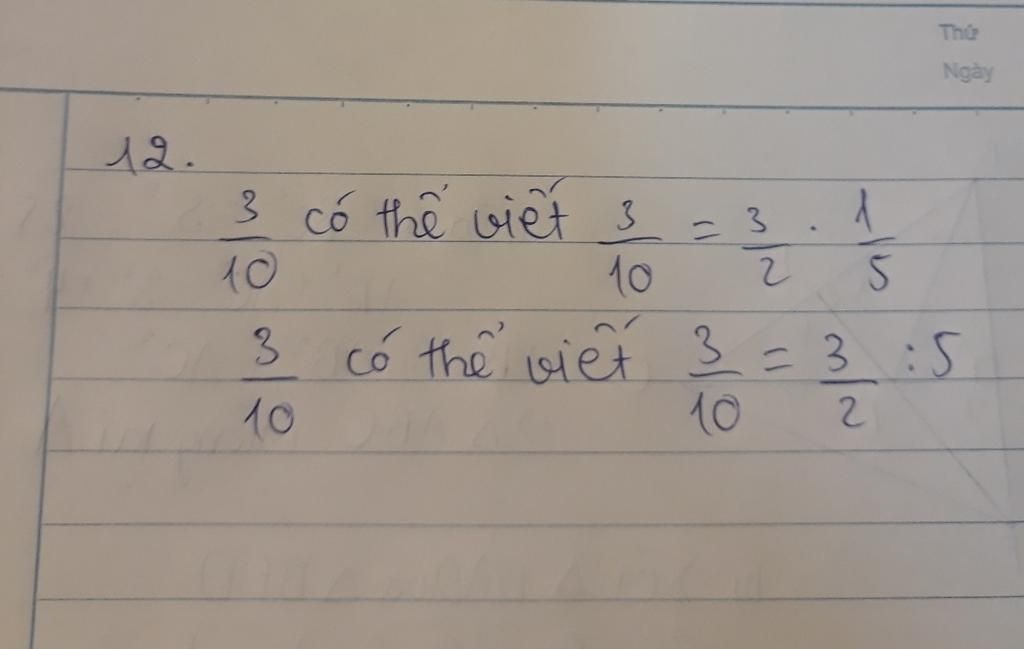 Thứ
Ngày
12.
3/10 có thể viết 3/10 = 3/2 . 1/5
3/10 có thể viết 3/10 = 3/2 : 5